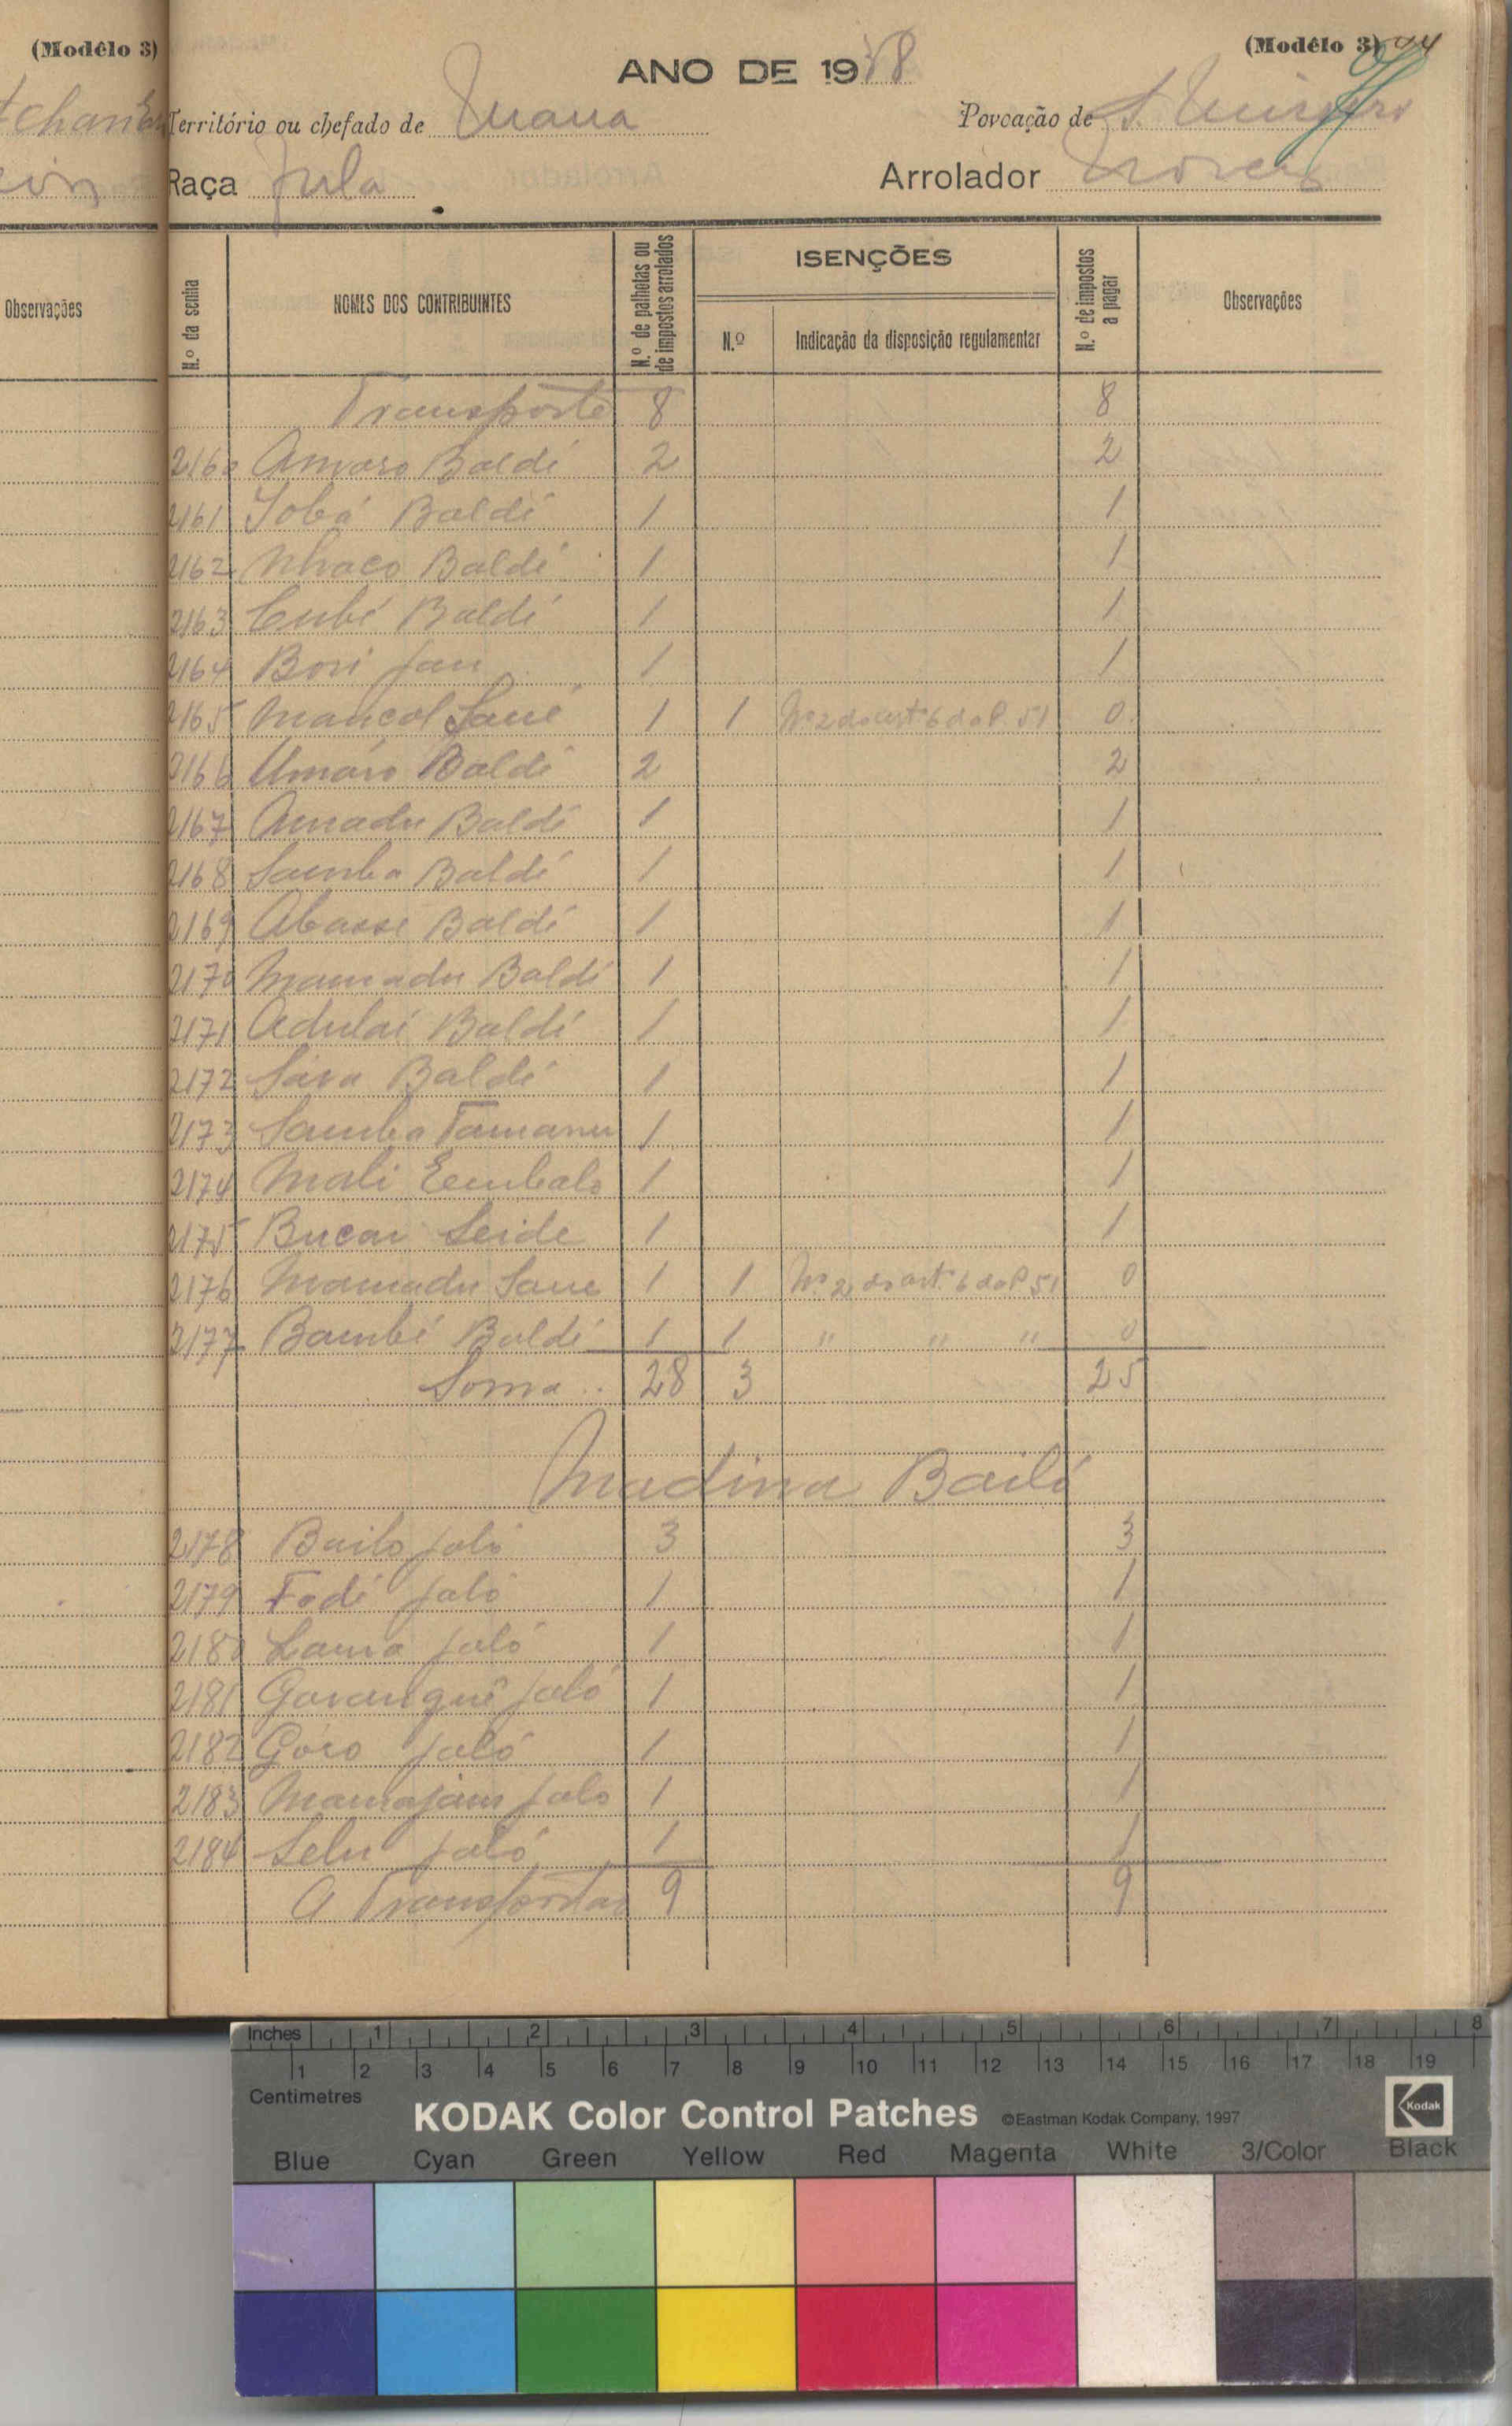 (Modêlo 3)
(Modêlo 3)
ANO DE 1938
Território ou chefado de Mana
Povoação de S.
Raça Fula
Arrolador
Observações
N.º da senha
NOMES DOS CONTRIBUINTES
N.º de palhotas ou de impostos arrolados
ISENÇÕES
N.º
Indicação da disposição regulamentar
N.º de impostos a pagar
Observações
Transporte 8 8
2160 Amvaro Baldé 2 2
2161 Iobá Baldé 1 1
2162 Nhaco Baldé 1 1
2163 Cubé Baldé 1 1
2164 Bori Jau 1 1
2165 Mancol Sané 1 1 Nº 2 do art 6 do P. 51 0
2166 Umáro Baldé 2 2
2167 Amadu Baldé 1 1
2168 Samba Baldé 1 1
2169 Abasse Baldé 1 1
2170 Mamadu Baldé 1 1
2171 Adulai Baldé 1 1
2172 Sára Baldé 1 1
2173 Samba Tamanu 1 1
2174 Mali Embaló 1 1
2175 Bucar Seide 1 1
2176 Mamadu Sane 1 1 Nº 2 do art. 6 do P. 51 0
2177 Bambé Baldé 1 1 " " " 0
Soma .. 28 3 25
Madina Bailó
2178 Bailo Jaló 3 3
2179 Fodé Jaló 1 1
2180 Laura Jaló 1 1
2181 Garanguê Jaló 1 1
2182 Góro Jaló 1 1
2183 Mamajam Jalo 1 1
2184 Selu Jaló 1 1
A Transportar 9 9
Inches 1 2 3 4 5 6 7 8
1 2 3 4 5 6 7 8 9 10 11 12 13 14 15 16 17 18 19
Centimetres
KODAK Color Control Patches ©Eastman Kodak Company, 1997 Kodak
Blue Cyan Green Yellow Red Magenta White 3/Color Black